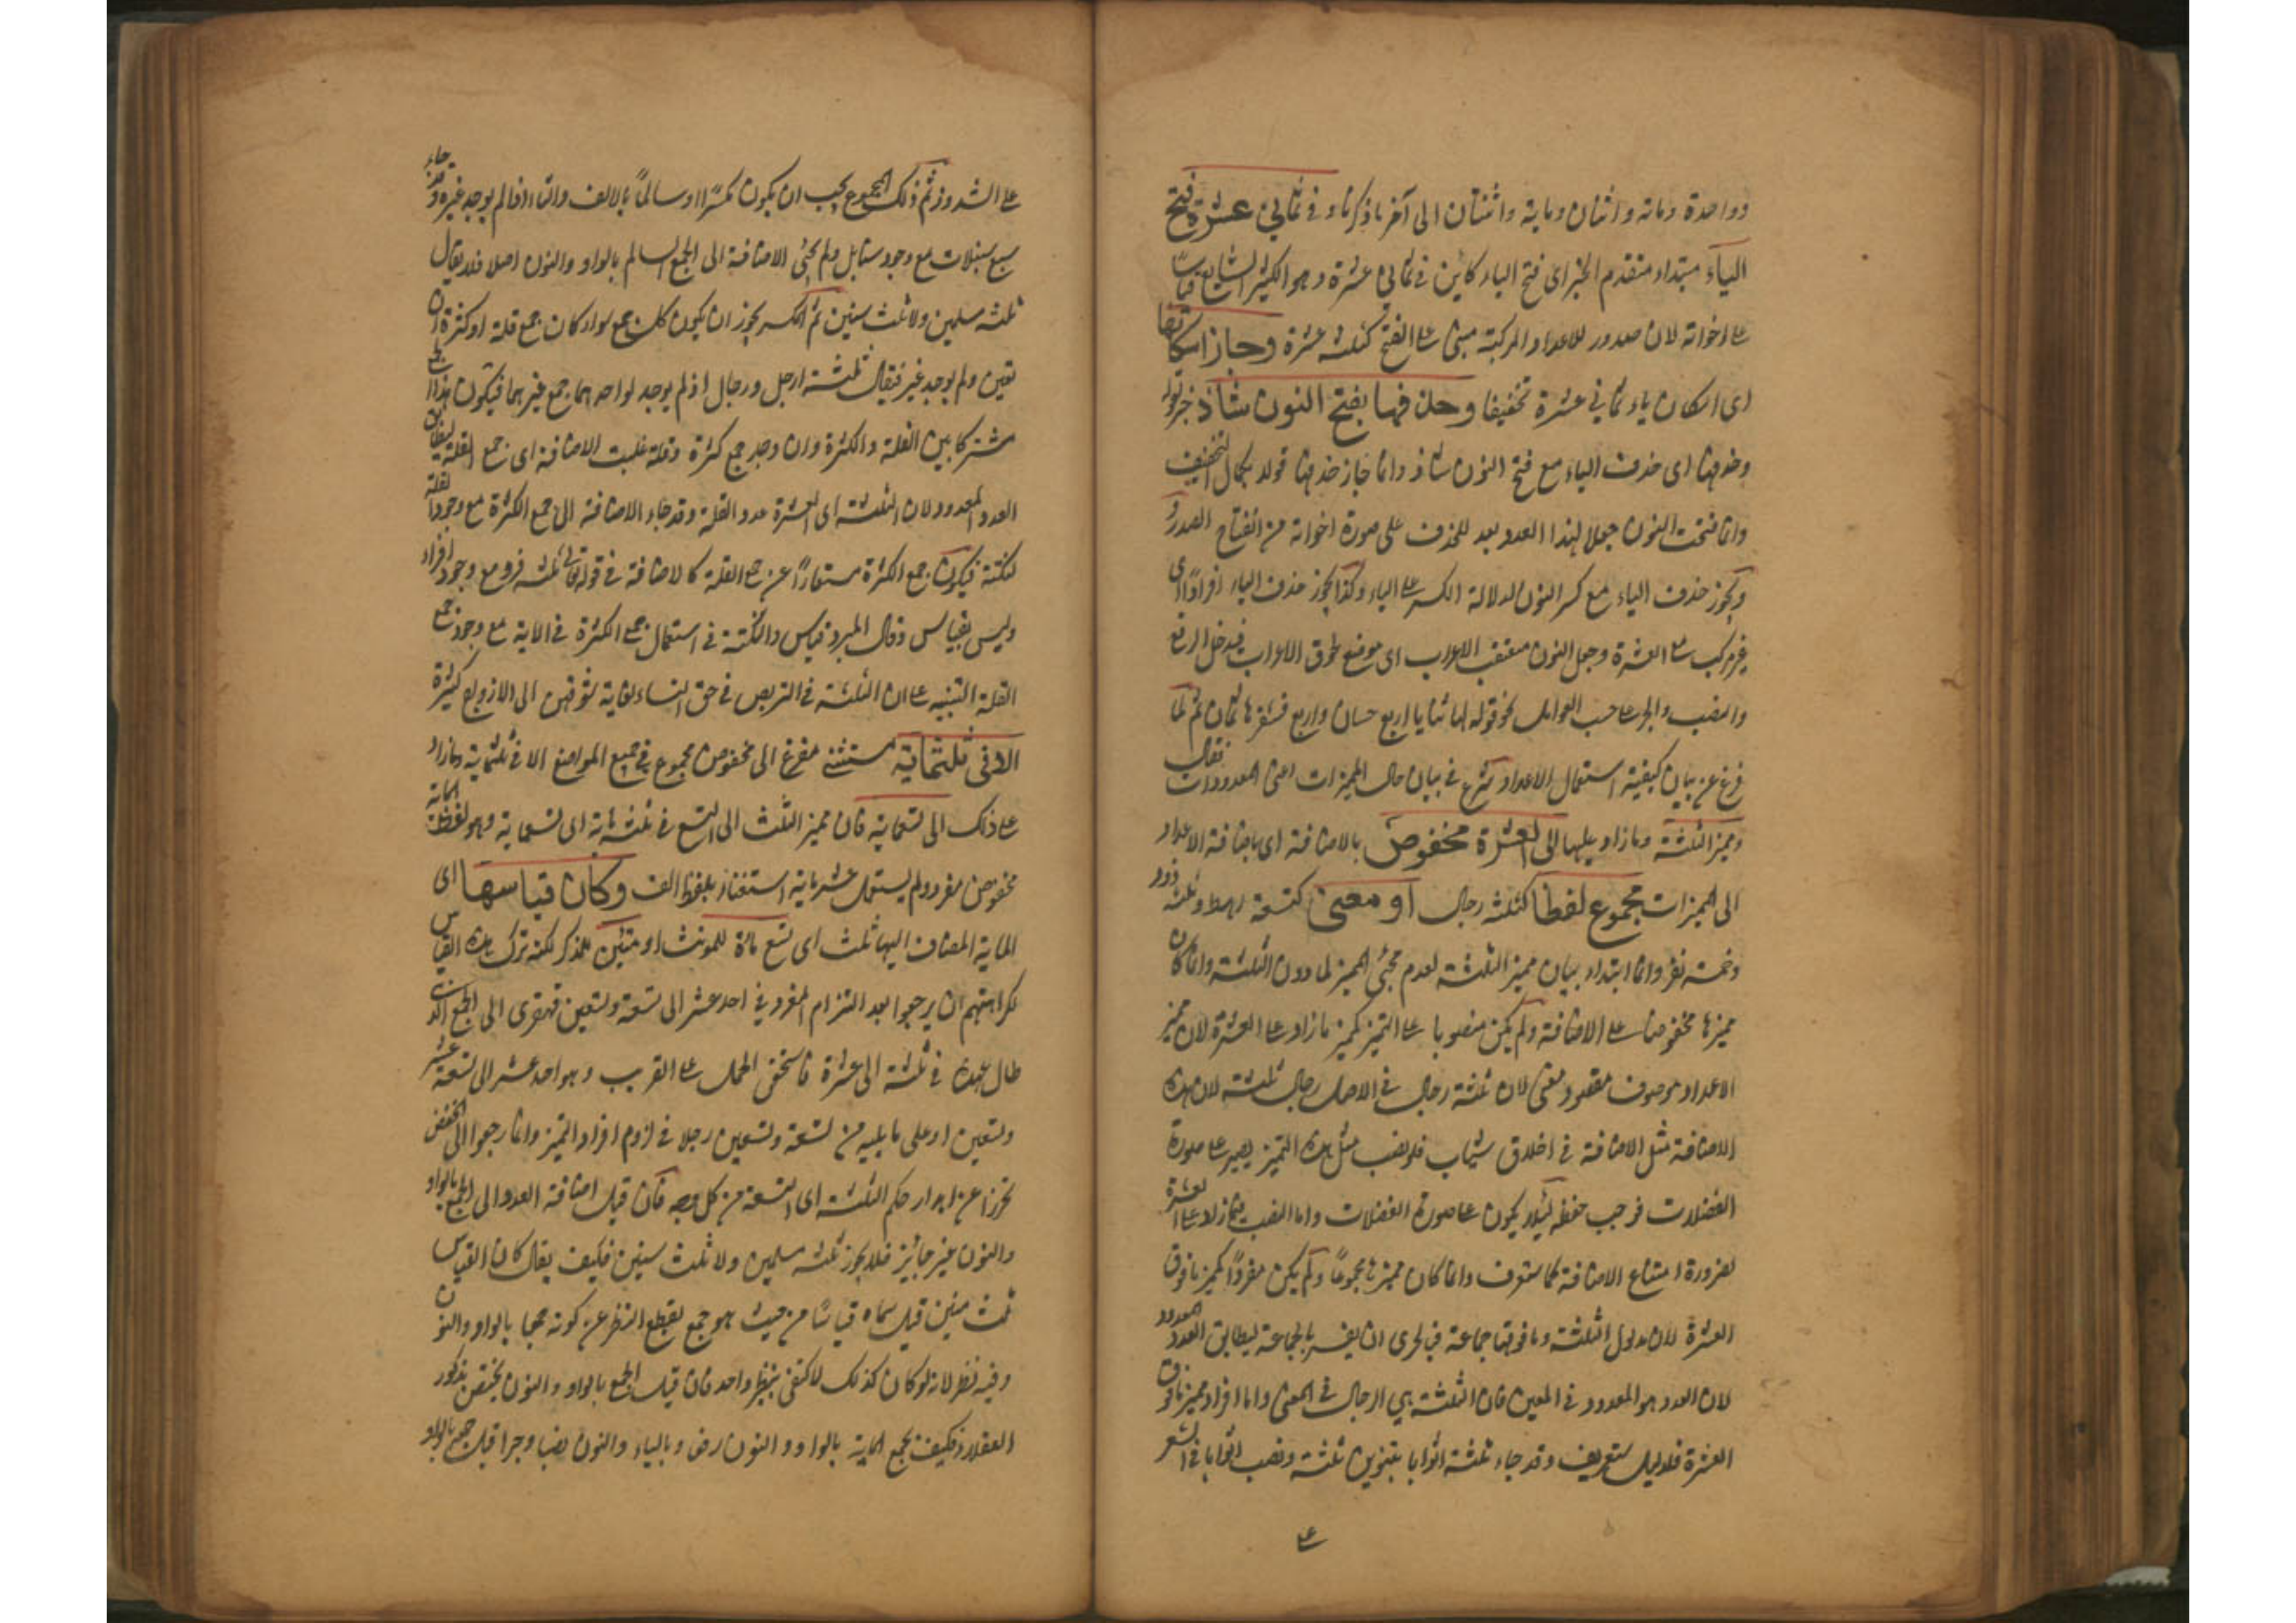 وواحدة ومائة واثنان ومایة واثنتان الى آخر ما ذكرنا و فی ثمانی عشرة فتح
الیاء مبتداء متقدم الخبر ای فتح الیاء كاین فی ثمانی عشرة وهو الكثیر الشایع قیاسا
علی اخواته لان صدور للاعداد المركبة مبنی علی الفتح كثلثه عشرة وجاز اسكانها
ای اسكان یاء ثمانی عشرة تخفیفا وحذفها بفتح النون شاذ
وحذفها ای حذف الیاء مع فتح النون شاذ وانما جاز حذفها لكمال التخفیف
وانما فتحت النون جعلا لهذا العدد بعد للحذف علی صورة اخواته من انفتاح الصدر و
یجوز حذف الیاء مع كسر النون لدلالة الكسر علی الیاء وكذا یجوز حذف الیاء افرادًا ای
غیر مركب مع العشرة وجعل النون معتقب الاعراب ای موضع طروق الاعراب فیدخل الرفع
والنصب والجر علی حسب العوامل نحو قوله لها ثنایا اربع حسان واربع فثغرها ثمان ثم لما
فرغ عن بیان كیفیة استعمال الاعداد شرع فی بیان حال الممیزات اعنی المعدودات فقال
وممیز الثلثة وما زاد یلیها الی العشرة مخفوض بالاضافة ای باضافة الاعداد
الی الممیزات مجموع لفظا كثلثه رجال او معنی كتسعة رهط وثلثه ذود
وخمسه نفر وانما ابتداء ببیان ممیز الثلثة لعدم مجئ الممیز لما دون الثلثة وانما كان
ممیزها مخفوضا علی الاضافة ولم یكن منصوبا علی التمیز كممیز ما زاد علی العشرة لان ممیز
الاعداد موصوف مقصود معنی لان ثلثة رجال فی الاصل رجال ثلثة لان هذه
الاضافة مثل الاضافة فی اخلاق ثیاب فلو نصب مثل هذه التمیز یصیر علی صورة
الفضلات فوجب خفظه لئلا یكون علی صورة الفضلات واما النصب فیما زاد علی العشرة
لضرورة امتناع الاضافة كما ستعرف وانما كان ممیزها مجموعًا ولم یكن مفردًا كممیز ما فوق
العشرة لان مدلول الثلثة وما فوقها جماعة فبالحری ان یفسر بالجماعة لیطابق العدد المعدود
لان العدد هو المعدود فی المعنی فان الثلثة هی الرجال فی المعنی واما افراد ممیز ما فوق
العشرة فلدلیل ستعریف وقد جاء ثلثة اثوابا بتنوین ثلثة ونصب اثوابا فی الشعر
علی
علی الشذوذ ثم ذلك المجموع یجب ان یكون مكسرًا او سالماً بالالف والتاء اذا لم یوجد غیره وقد جاء
سبع سنبلات مع وجود سنابل ولم یجئ الاضافة الی الجمع السالم بالواو والنون اصلا فلا یقال
ثلثه مسلمین ولا ثلث سنین ثم المكسر یجوز ان یكون كل جمع سواء كان جمع قلة او كثرة ان
تعین ولم یوجد غیره فیقال ثلثة ارجل ورجال اذ لم یوجد لواحدهما جمع غیرهما فیكون هذا الجمع
مشتركا بین القلة والكثرة وان وجد جمع كثرة وقلة غلبت الاضافة ای جمع القلة لیطابق
العدد المعدود لان الثلثة ای العشرة عدد القلة وقد جاء الاضافة الی جمع الكثرة مع وجود القلة
لنكتة فیكون جمع الكثرة مستعارًا عن جمع القلة كالاضافة فی قوله تعالی ثلثه قروء مع وجود اقراء
ولیس بقیاس وقال المبرد قیاس والنكتة فی استعمال جمع الكثرة فی الایة مع وجود جمع
القلة التنبیه علی ان الثلثة فی التربص فی حق النساء لغایة تشوقهن الی الازواج كثیرة
الا فی ثلثمایة مستثنی مفرغ الی مخفوض مجموع فی جمیع المواضع الا فی ثلثمایة وما زاد
علی ذلك الی تسعمایة فان ممیز الثلث الی التسع فی ثلثمایة الی تسعمایة وهو لفظ المایة
مخفوض مفرد ولم یستعمل عشر مایة استغناء بلفظ الف وكان قیاسها ای
المایة المضاف الیها ثلث ای تسع مائة للمونث او مئین للمذكر لكنه ترك هذه القیاس
لكراهتهم ان یرجعوا بعد التزام المفرد فی احد عشر الی تسعة وتسعین قهقری الی الجمع الذی
طال عهده فی ثلثة الی عشرة فاستحق الحمل علی القریب وهو احد عشر الی تسعة عشر
وتسعین او علی ما یلیه من تسعة وتسعین رجلا فی لزوم افراد التمیز وانما رجعوا الی الخفض
تحرزا عن اهدار حكم الثلثة ای التسعة من كل وجه فان قیل اضافة العدد الی الجمع بالواو
والنون غیر جائیز فلا یجوز ثلثه مسلمین ولا ثلث سنین فكیف یقال كان القیاس
ثلث مئین قیل سماه قیاسًا من حیث هو جمع بقطع النظر عن كونه جمعا بالواو والنون
وفیه نظر لانه لو كان كذلك لاكتفی بنظر واحد فان قیل الجمع بالواو والنون یختص بذكور
العقلاء فكیف یجمع المایة بالواو والنون رفعا وبالیاء والنون نصبا وجرا قیل جمع بالواو